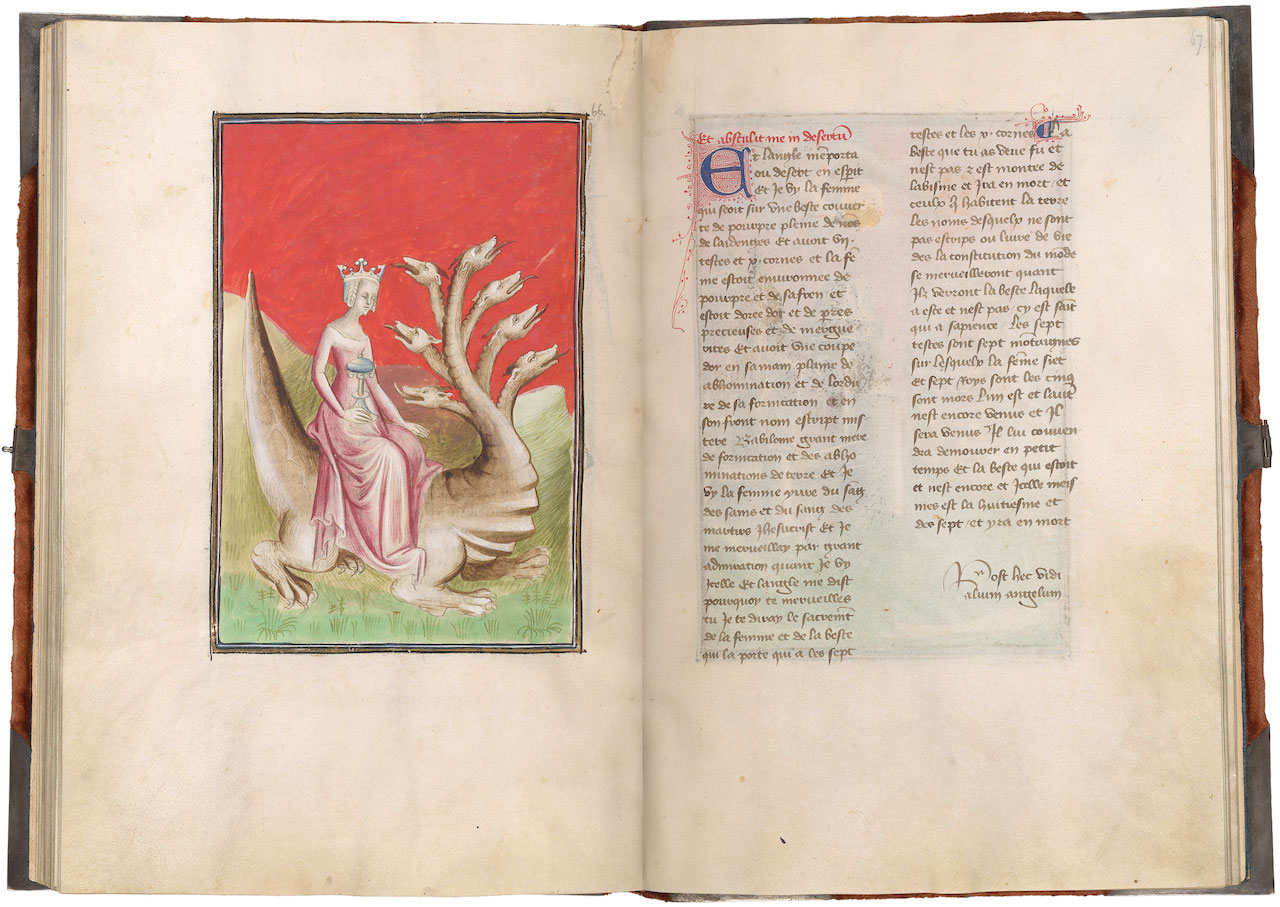 66.
67.
Et abstulit me in desertũ
Et langle memporta
ou desert en esp̃it
Et Je vy la femme
qui seoit sur vne beste couuer
te de pourpre pleine de nõs
de laidenges Et auoit vij.
testes et x. cornes et la fẽ
me estoit enuironnee de
pourpre et de safren et
estoit doree dor et de pierres
precieuses et de mergue
rites Et auoit vne coupe
dor en sa main plaine de
abhominacion et de lordu
re de sa fornicacion et en
son front nom escript mis
tere Babiloine grant mere
de fornicacion et des abho
minacions de terre Et Je
vy la femme yure du sãg
des sains et du sang des
martirs Jhesucrist Et Je
me merueillay par grant
admiracion quant Je vy
Jcelle Et langle me dist
pourquoy te merueilles
tu Je te diray le sacremẽt
de la femme et de la beste
qui la porte qui a les sept
testes et les x. cornes La
beste que tu as veue fu et
nest pas et est montee de
labisme et Jra en mort et
ceulx q̃ habitent la terre
les noms desquelx ne sont
pas escrips ou liure de vie
des la constitution du mõde
se merueilleront quant
Jlz verront la beste laquele
a este et nest pas cy est sens
qui a sapience Les sept
testes sont sept montaignes
sur lesquelx la fẽme siet
Et sept Roys sont les cinq
sont mors Lun est et lautre
nest encore venus et Jl
sera venus Jl lui conuen
dra demourer en petit
temps Et la beste qui estoit
et nest encore et Jcelle meis
mes est la huitiesme et
des sept et yra en mort
Post hec vidi
alium angelum